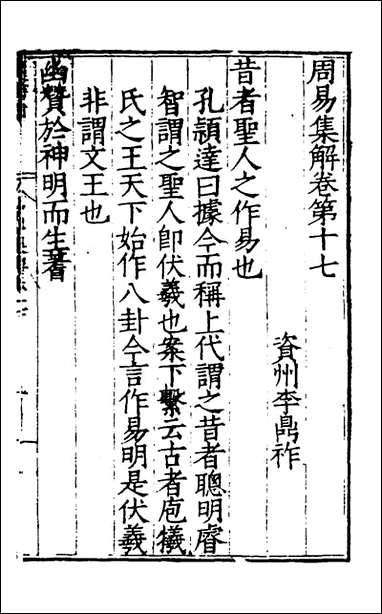 周易集解卷第十七
資州李鼎祚
昔者聖人之作易也
孔穎達曰據今而稱上代謂之昔者聰明睿
智謂之聖人卽伏羲也案下繫云古者庖犧
氏之王天下始作八卦今言作易明是伏羲
非謂文王也
幽贊於神明而生蓍